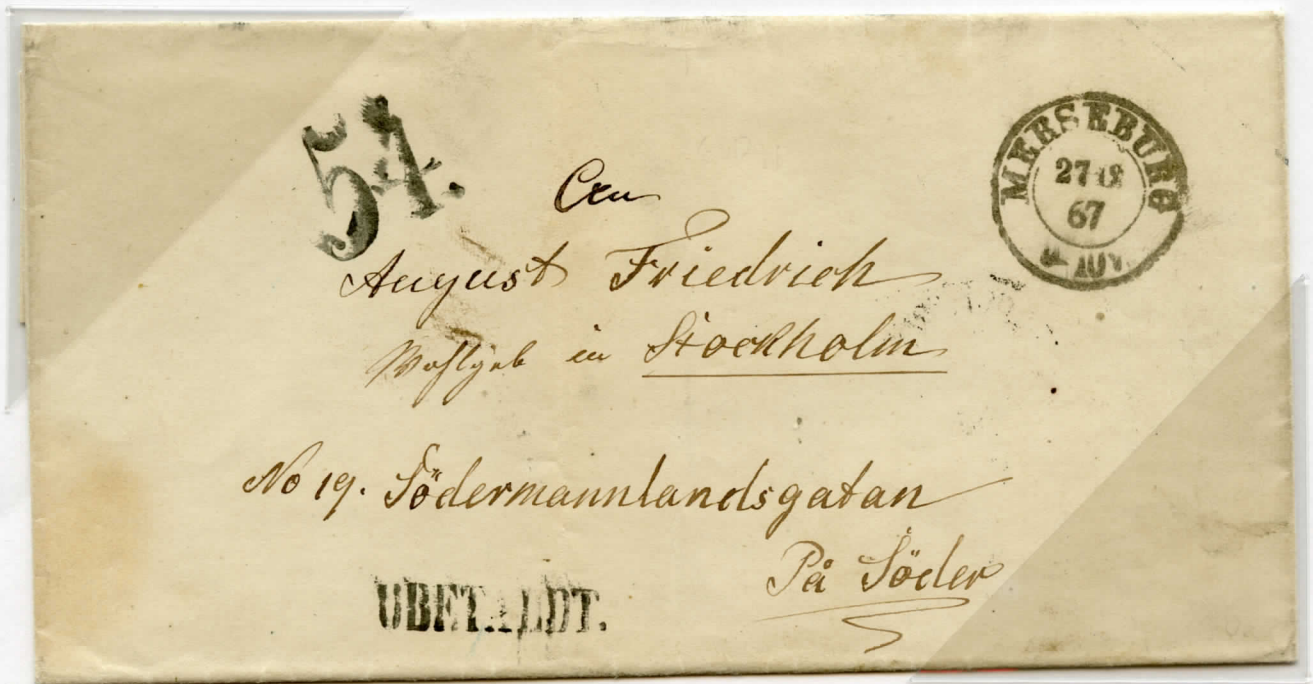 54.
MERSEBURG
27 12
67
9-10V.
An
August Friedrich
Wohlgeb in Stockholm
No 19. Södermannlandsgatan
På Söder
UBETALDT.